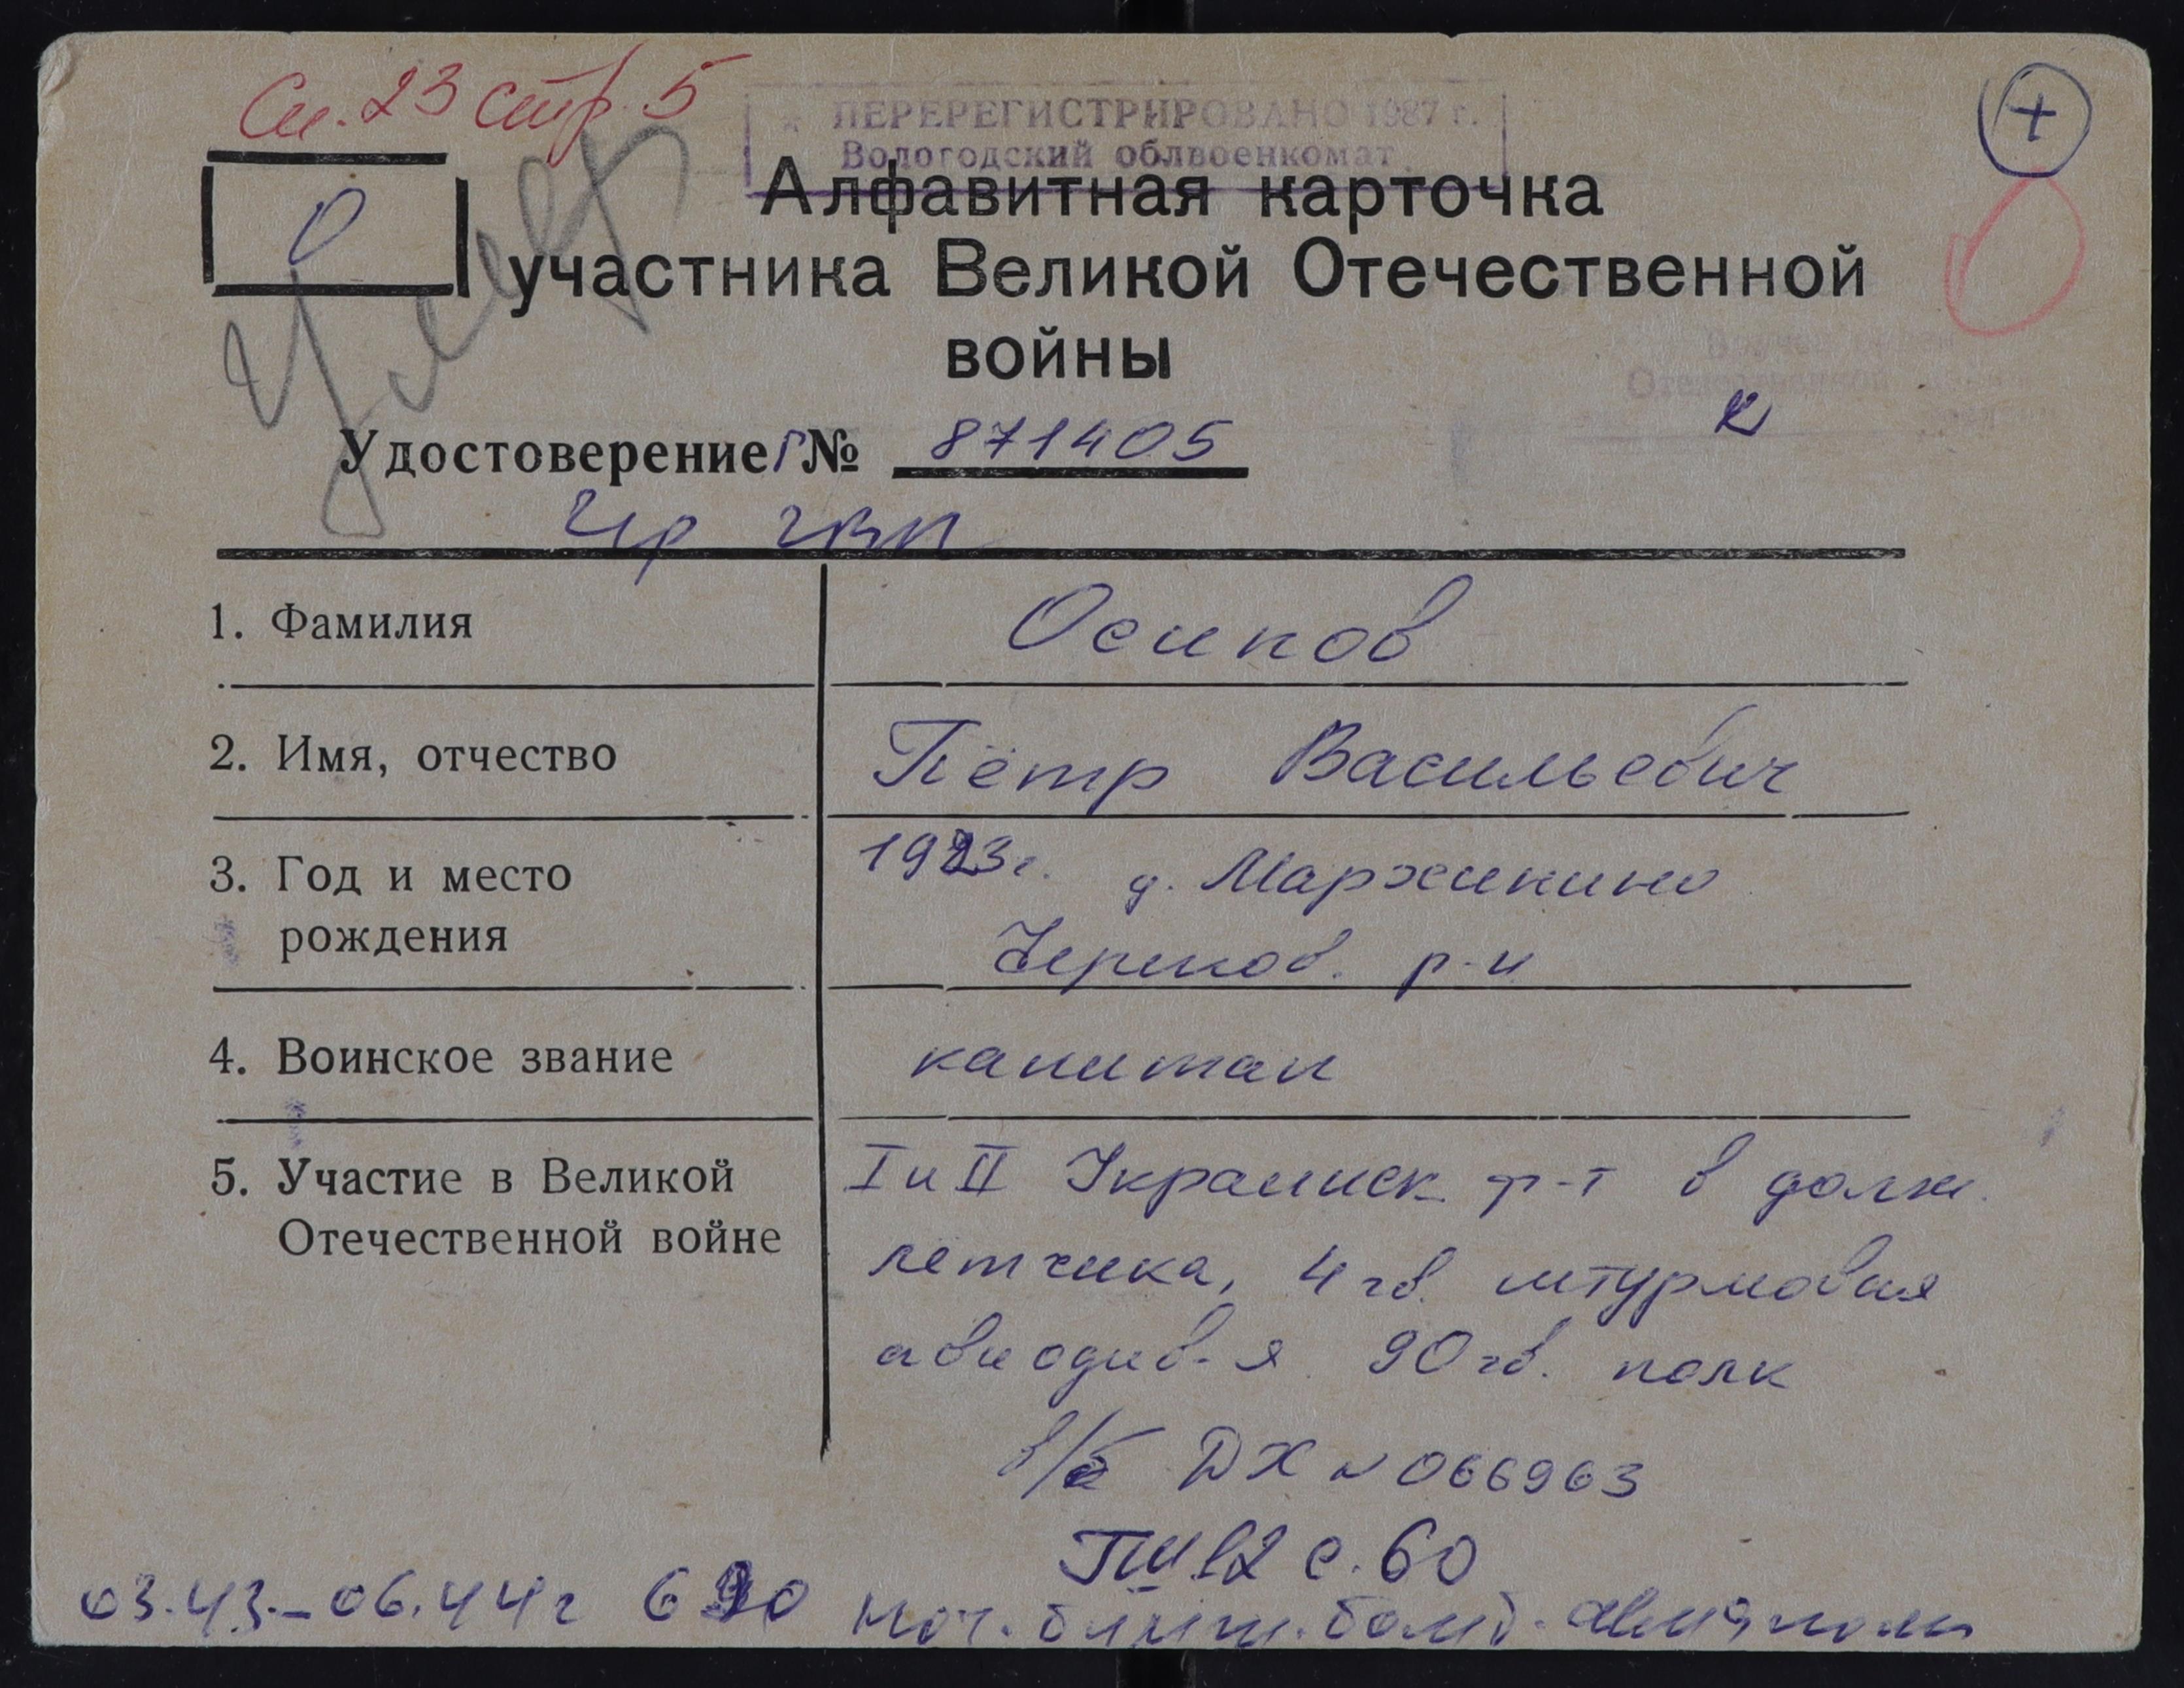 Сп. 23 стр. 5
ПЕРЕРЕГИСТРИРОВАНО 1987 г.
Вологодский облвоенкомат
+
О
Умер
Алфавитная карточка
участника Великой Отечественной
войны
Удостоверение Г № 871405
Чр ГВК
1. Фамилия Осипов
2. Имя, отчество Пётр Васильевич
3. Год и место рождения 1923г. д. Маржинино
Черепов. р-н
4. Воинское звание капитан
5. Участие в Великой Отечественной войне I и II Украинск ф-т в долж.
летчика, 4 гв. штурмовая
авиодив-я 90 гв. полк
в/б ДХ N 066963
с. 60
03.43.-06.44г 690 ноч. ближн. бомб. авиаполк